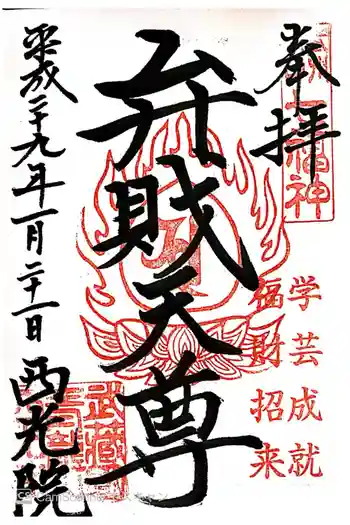 奉拝
学芸成就
福財招来
弁財天尊
平成二十九年一月二十一日
西光院
武蔵
CS CamScanner